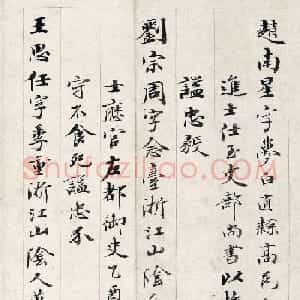 趙南星字夢白直隸高邑
進士仕至吏部尚書以
謚忠毅
劉宗周字念臺浙江山陰人
士應官左都御史乙酉
守不食死謚忠
王思任字季重浙江山陰人
Shufazidao.com